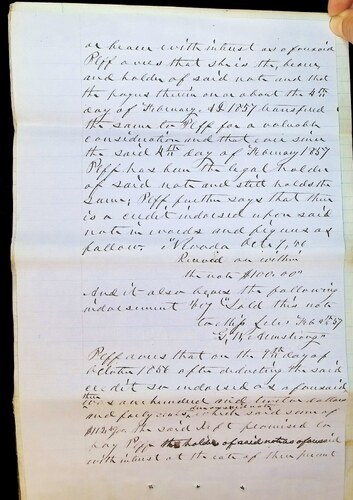 or bearer with intrust as aforesaid
Peff avers that she is the bearer
and holder of said note and that
the payee therein on or about the 4th
day of February, AD 1857 transfered
the same to Peff for a valuable
consideration and that ever since
the said 4th day of February 1857
Peff has been the legal holder
of said note and still holds the
same; Peff further says that there
is a credit indorsed upon said
note in words and figures as
follows "Nevada Oct 9, 56
Received on within
the note $100.00"
And it also bears the following
indorsement "Sold this note
to Feb 4th 57
G. W. Armstrong"
Peff avers that on the 9th day of
October 1856 after deducting the said
credit so indorsed as aforesaid
there was one hundred and twelve dollars
and forty cents due on said note which said sum of
the said Deft promised to
pay Peff the holder of said note as aforesaid
with intrust at the rate of three per cent